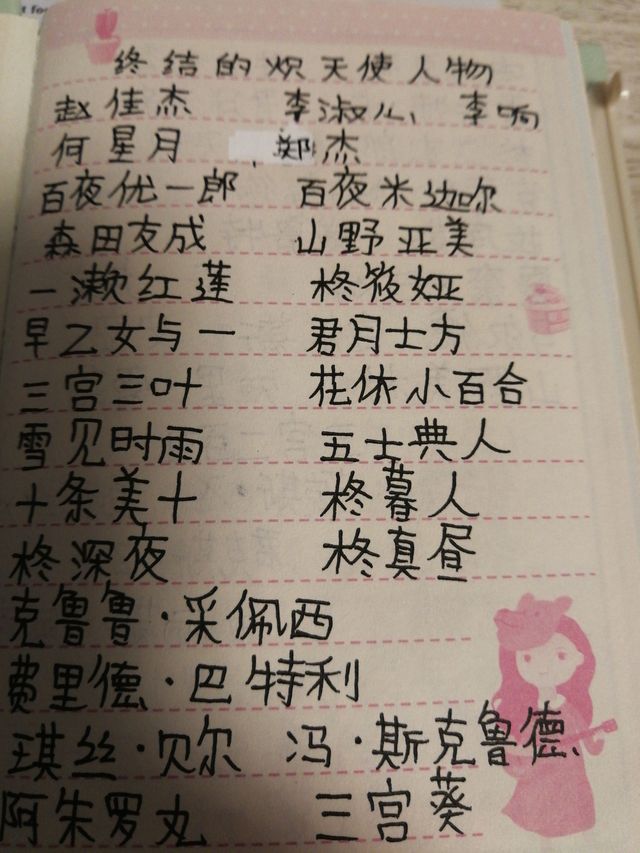 t for
终结的炽天使人物
赵佳杰 李淑心 李响
何星月 郑杰
百夜优一郎 百夜米迦尔
森田友成 山野亚美
一濑红莲 柊筱娅
早乙女与一 君月士方
三宫三叶 花依小百合
雪见时雨 五士典人
十条美十 柊暮人
柊深夜 柊真昼
克鲁鲁·采佩西
费里德·巴特利
琪丝·贝尔 冯·斯克鲁德
阿朱罗丸 三宫葵